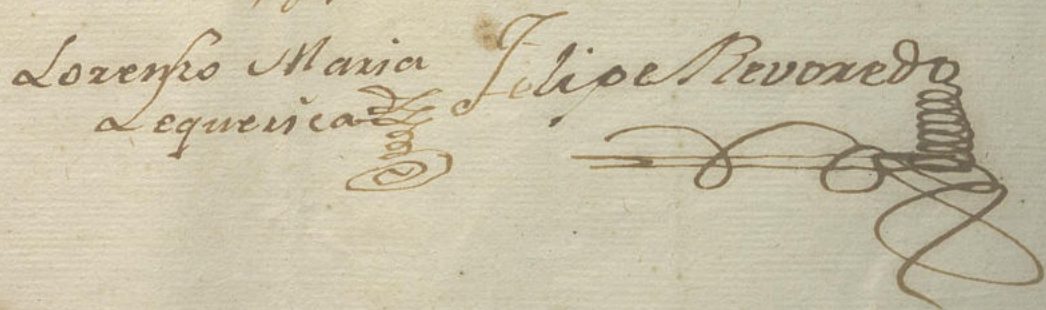 Lorenzo Maria
Lequerica
Felipe Revoredo